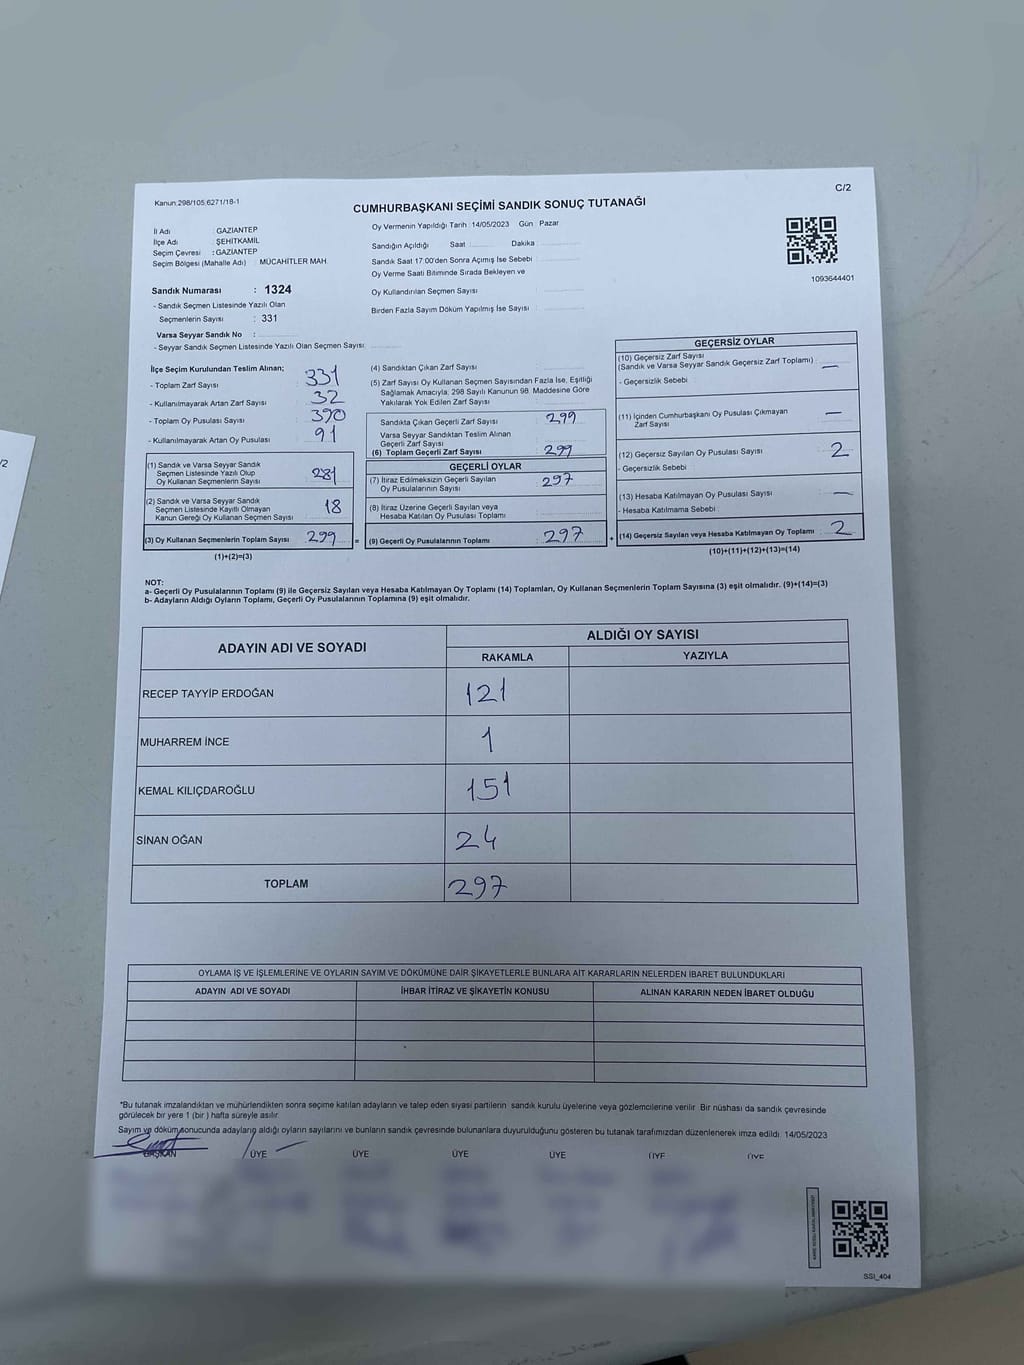 C/2
Kanun:298/105,6271/18-1
CUMHURBAŞKANI SEÇİMİ SANDIK SONUÇ TUTANAĞI
İl Adı : GAZİANTEP
İlçe Adı : ŞEHİTKAMİL
Seçim Çevresi : GAZİANTEP
Seçim Bölgesi (Mahalle Adı) : MÜCAHİTLER MAH.
Oy Vermenin Yapıldığı Tarih :14/05/2023 Gün : Pazar
Sandığın Açıldığı Saat : Dakika :
Sandık Saat 17:00'den Sonra Açımış İse Sebebi :
Oy Verme Saati Bitiminde Sırada Bekleyen ve
Oy Kullandırılan Seçmen Sayısı :
Birden Fazla Sayım Döküm Yapılmış İse Sayısı :
1093644401
Sandık Numarası : 1324
- Sandık Seçmen Listesinde Yazılı Olan
Seçmenlerin Sayısı : 331
Varsa Seyyar Sandık No :
- Seyyar Sandık Seçmen Listesinde Yazılı Olan Seçmen Sayısı:
İlçe Seçim Kurulundan Teslim Alınan;
- Toplam Zarf Sayısı : 331
- Kullanılmayarak Artan Zarf Sayısı : 32
- Toplam Oy Pusulası Sayısı : 390
- Kullanılmayarak Artan Oy Pusulası : 91
(1) Sandık ve Varsa Seyyar Sandık
Seçmen Listesinde Yazılı Olup
Oy Kullanan Seçmenlerin Sayısı : 281
(2) Sandık ve Varsa Seyyar Sandık
Seçmen Listesinde Kayıtlı Olmayan
Kanun Gereği Oy Kullanan Seçmen Sayısı : 18
(3) Oy Kullanan Seçmenlerin Toplam Sayısı : 299
(1)+(2)=(3)
(4) Sandıktan Çıkan Zarf Sayısı :
(5) Zarf Sayısı Oy Kullanan Seçmen Sayısından Fazla İse, Eşitliği
Sağlamak Amacıyla; 298 Sayılı Kanunun 98. Maddesine Göre
Yakılarak Yok Edilen Zarf Sayısı :
Sandıkta Çıkan Geçerli Zarf Sayısı : 299
Varsa Seyyar Sandıktan Teslim Alınan
Geçerli Zarf Sayısı :
(6) Toplam Geçerli Zarf Sayısı : 299
GEÇERLİ OYLAR
(7) İtiraz Edilmeksizin Geçerli Sayılan
Oy Pusulalarının Sayısı : 297
(8) İtiraz Üzerine Geçerli Sayılan veya
Hesaba Katılan Oy Pusulası Toplamı :
= (9) Geçerli Oy Pusulalarının Toplamı : 297
GEÇERSİZ OYLAR
(10) Geçersiz Zarf Sayısı
(Sandık ve Varsa Sandık Geçersiz Zarf Toplamı) : —
- Geçersizlik Sebebi :
(11) İçinden Cumhurbaşkanı Oy Pusulası Çıkmayan
Zarf Sayısı : —
(12) Geçersiz Sayılan Oy Pusulası Sayısı : 2
- Geçersizlik Sebebi :
(13) Hesaba Katılmayan Oy Pusulası Sayısı : —
- Hesaba Katılmama Sebebi :
+ (14) Geçersiz Sayılan veya Hesaba Katılmayan Oy Toplamı : 2
(10)+(11)+(12)+(13)=(14)
NOT:
a- Geçerli Oy Pusulalarının Toplamı (9) ile Geçersiz Sayılan veya Hesaba Katılmayan Oy Toplamı (14) Toplamları, Oy Kullanan Seçmenlerin Toplam Sayısına (3) eşit olmalıdır. (9)+(14)=(3)
b- Adayların Aldığı Oyların Toplamı, Geçerli Oy Pusulalarının Toplamına (9) eşit olmalıdır.
ADAYIN ADI VE SOYADI ALDIĞI OY SAYISI
RAKAMLA YAZIYLA
RECEP TAYYİP ERDOĞAN 121
MUHARREM İNCE 1
KEMAL KILIÇDAROĞLU 151
SİNAN OĞAN 24
TOPLAM 297
OYLAMA İŞ VE İŞLEMLERİNE VE OYLARIN SAYIM VE DÖKÜMÜNE DAİR ŞİKAYETLERLE BUNLARA AİT KARARLARIN NELERDEN İBARET BULUNDUKLARI
ADAYIN ADI VE SOYADI İHBAR İTİRAZ VE ŞİKAYETİN KONUSU ALINAN KARARIN NEDEN İBARET OLDUĞU
*Bu tutanak imzalandıktan ve mühürlendikten sonra seçime katılan adayların ve talep eden siyasi partilerin sandık kurulu üyelerine veya gözlemcilerine verilir. Bir nüshası da sandık çevresinde
görülecek bir yere 1 (bir ) hafta süreyle asılır.
Sayım ve döküm sonucunda adayların aldığı oyların sayılarını ve bunların sandık çevresinde bulunanlara duyurulduğunu gösteren bu tutanak tarafımızdan düzenlenerek imza edildi. 14/05/2023
BAŞKAN ÜYE ÜYE ÜYE ÜYE ÜYE ÜYE
SSI_404